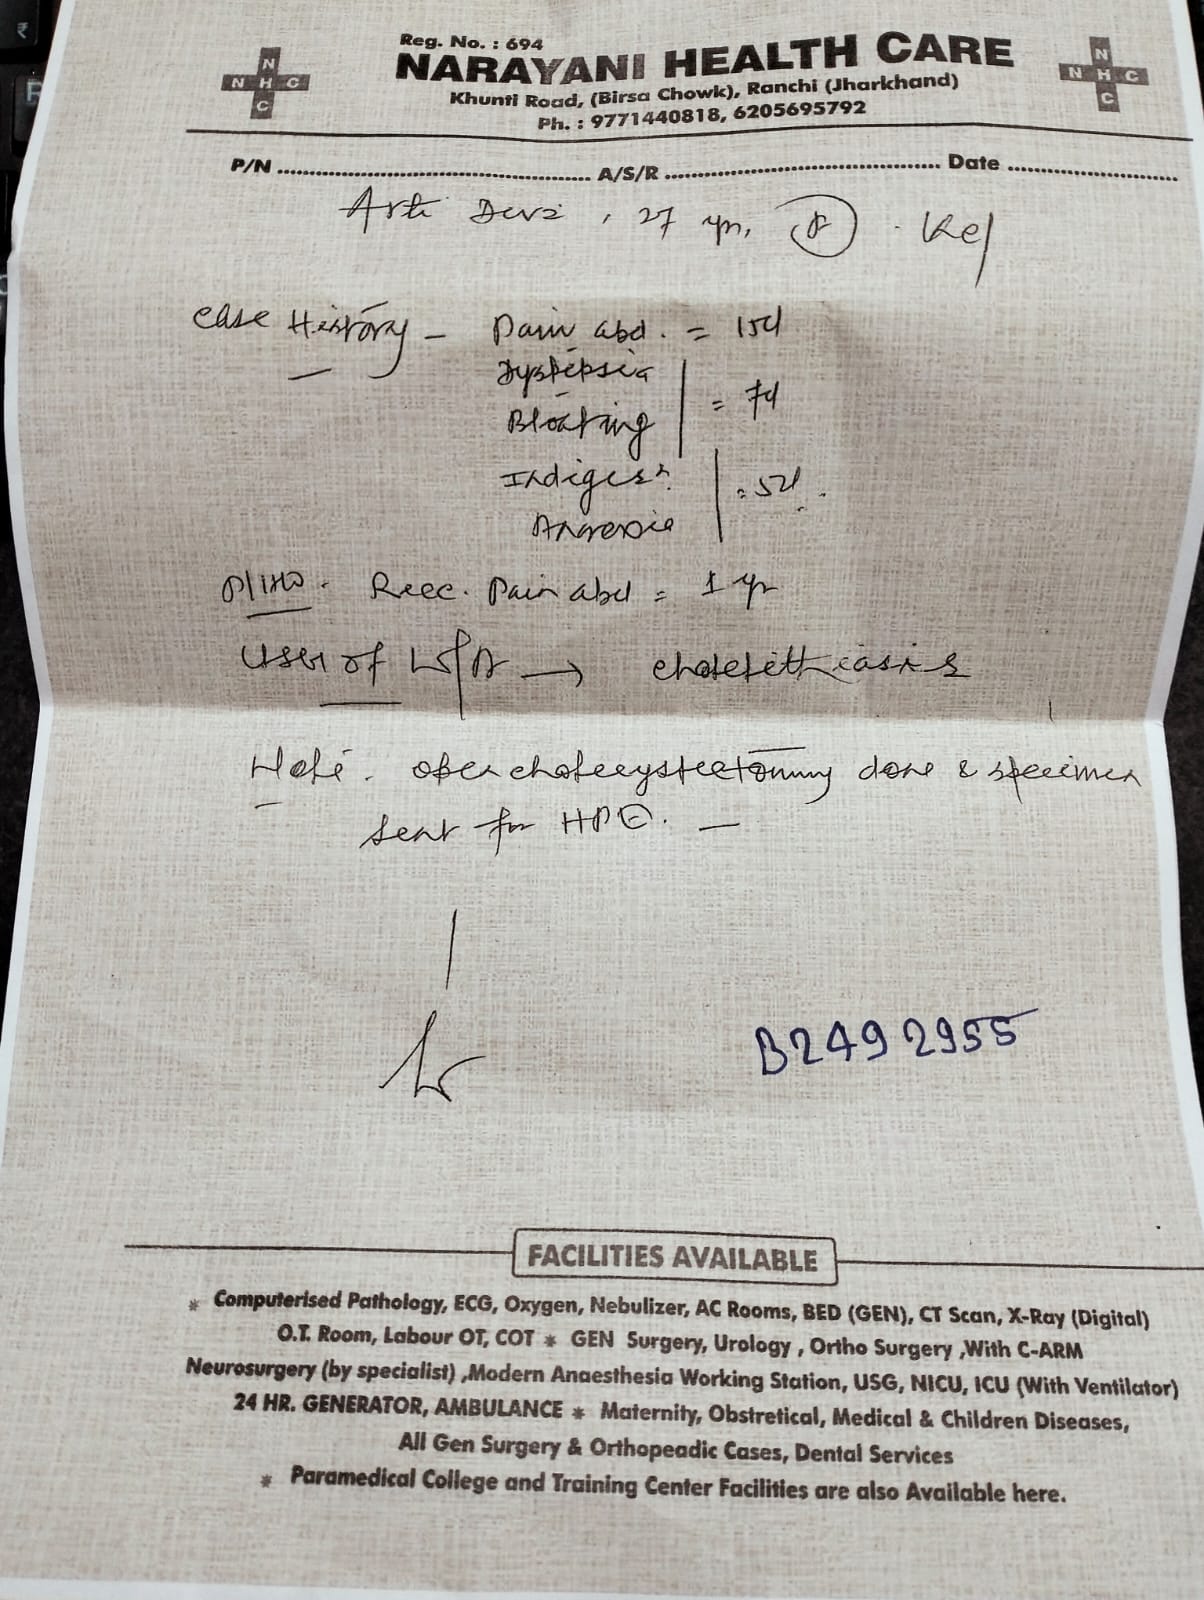 Reg. No. : 694
NARAYANI HEALTH CARE
Khunti Road, (Birsa Chowk), Ranchi (Jharkhand)
Ph. : 9771440818, 6205695792
N
N H C
C
N
N H C
C
P/N ........ A/S/R ........ Date ........
Arti Devi, 27 yrs, F.
Case History - Pain abd. = 15d
Dyspepsia
Bloating = 7d
Indigesn.
Anorexia = 5d.
Rec. Pain abd = 1 yr
of W/A → cholelithiasis
Note. open cholecystectomy done & specimen
sent for HPE. —
B2492955
FACILITIES AVAILABLE
* Computerised Pathology, ECG, Oxygen, Nebulizer, AC Rooms, BED (GEN), CT Scan, X-Ray (Digital)
O.T. Room, Labour OT, COT * GEN Surgery, Urology , Ortho Surgery ,With C-ARM
Neurosurgery (by specialist) ,Modern Anaesthesia Working Station, USG, NICU, ICU (With Ventilator)
24 HR. GENERATOR, AMBULANCE * Maternity, Obstretical, Medical & Children Diseases,
All Gen Surgery & Orthopeadic Cases, Dental Services
* Paramedical College and Training Center Facilities are also Available here.